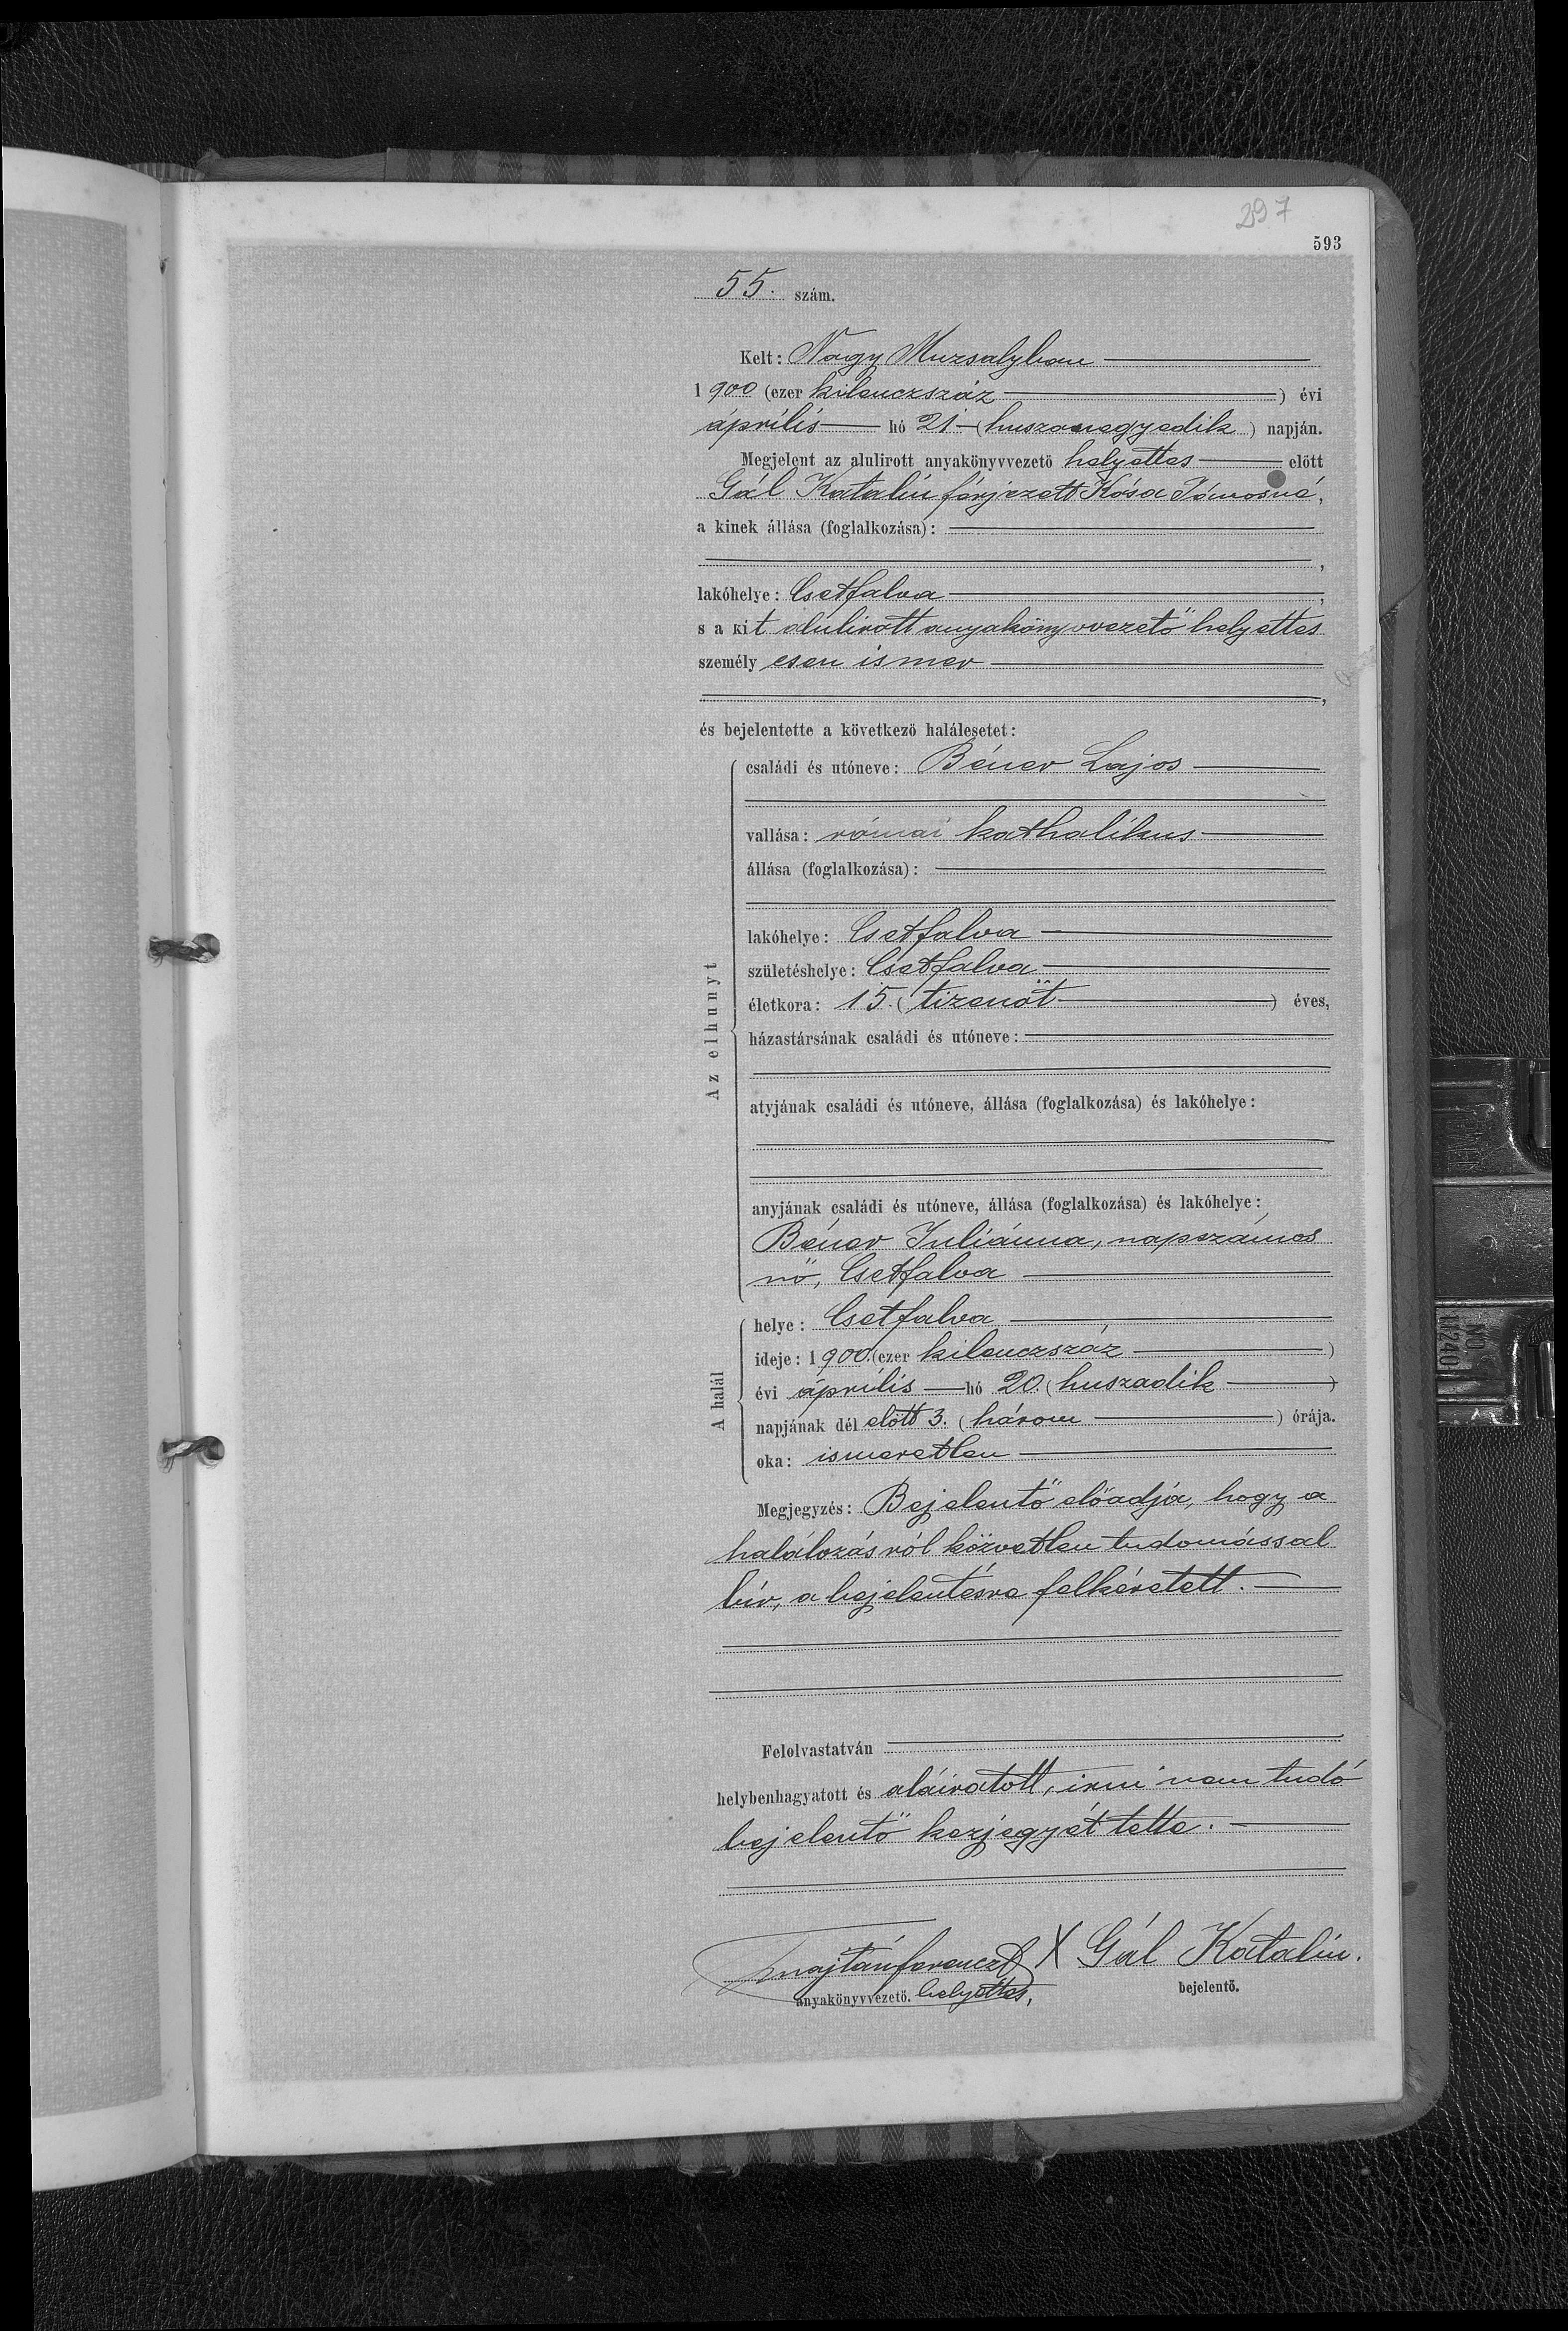 297
593
55. szám.
Kelt: Nagy Muzsalyban
1900 (ezer kilenczszáz ) évi
április hó 21 (huszonegyedik) napján.
Megjelent az alulirott anyakönyvvezető helyettes előtt
Gál Katalin férjezett Kósa Jánosné,
a kinek állása (foglalkozása):
,
lakóhelye: Csetfalva ,
s a kit alulirott anyakönyvvezető helyettes
személyesen ismer
,
és bejelentette a következő halálesetet:
Az elhunyt
családi és utóneve: Béner Lajos
vallása: római katholikus
állása (foglalkozása):
lakóhelye: Csetfalva
születéshelye: Csetfalva
életkora: 15. (tizenöt ) éves,
házastársának családi és utóneve:
atyjának családi és utóneve, állása (foglalkozása) és lakóhelye:
anyjának családi és utóneve, állása (foglalkozása) és lakóhelye:
Béner Juliánna, napszámos
nő, Csetfalva
A halál
helye: Csetfalva
ideje: 1900. (ezer kilenczszáz )
évi április hó 20. (huszadik )
napjának dél előtt 3. (három ) órája.
oka: ismeretlen
Megjegyzés: Bejelentő előadja, hogy a
halálozásról közvetlen tudomással
bír, a bejelentésre felkéretett.
Felolvastatván
helybenhagyatott és aláiratott, irni nem tudó
bejelentő kezjegyét tette.
Majtán Ferencz X Gál Katalin.
anyakönyvvezető. helyettes, bejelentő.
NO 11240